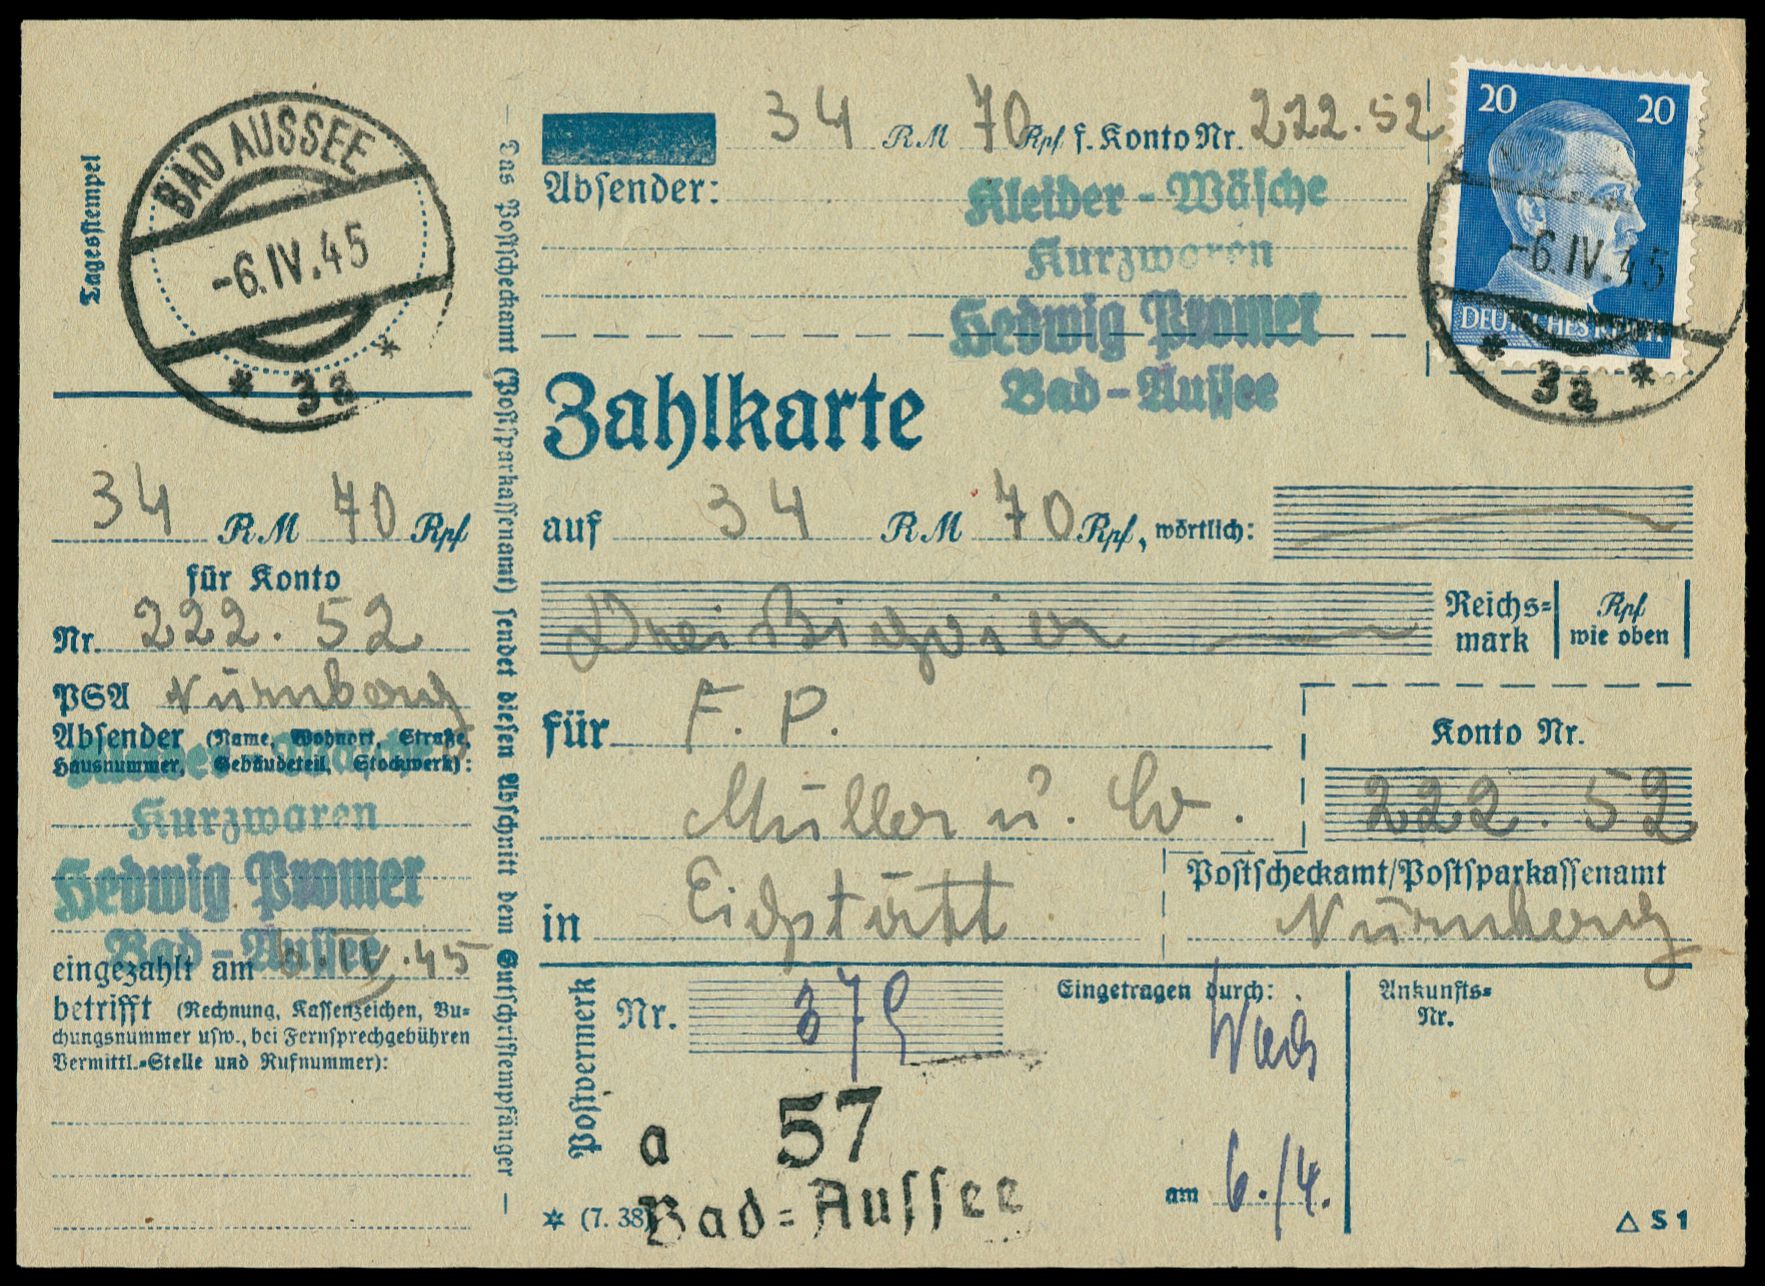 Tagesstempel
BAD AUSSEE
-6.IV.45
* 3a *
34 RM 70 Rpf
für Konto
Nr. 222.52
PSA Nürnberg
Absender (Name, Wohnort, Straße,
Hausnummer, Gebäudeteil, Stockwerk):
Kurzwaren
Hedwig Promer
Bad-Aussee
eingezahlt am 6.IV.45
betrifft (Rechnung, Kassenzeichen, Bu=
chungsnummer usw., bei Fernsprechgebühren
Vermittl.=Stelle und Rufnummer):
— Das Postscheckamt (Postsparkassenamt) sendet diesen Abschnitt dem Gutschriftempfänger —
34 RM 70 Rpf f. Konto Nr. 222.52
Absender:
Kleider-Wäsche
Kurzwaren
Hedwig Promer
Bad-Aussee
20 20
DEUTSCHES REICH
-6.IV.45
* 3a *
Zahlkarte
auf 34 RM 70 Rpf, wörtlich:
Dreißigvier
Reichs=
mark
Rpf
wie oben
für F. P.
Müller u. Co.
in Eichstätt
Konto Nr.
222.52
Postscheckamt/Postsparkassenamt
Nürnberg
Postvermerk
Nr. 375
a 57
Bad=Aussee
Eingetragen durch:
am 6./4.
Ankunfts=
Nr.
(7. 38)
△ S 1